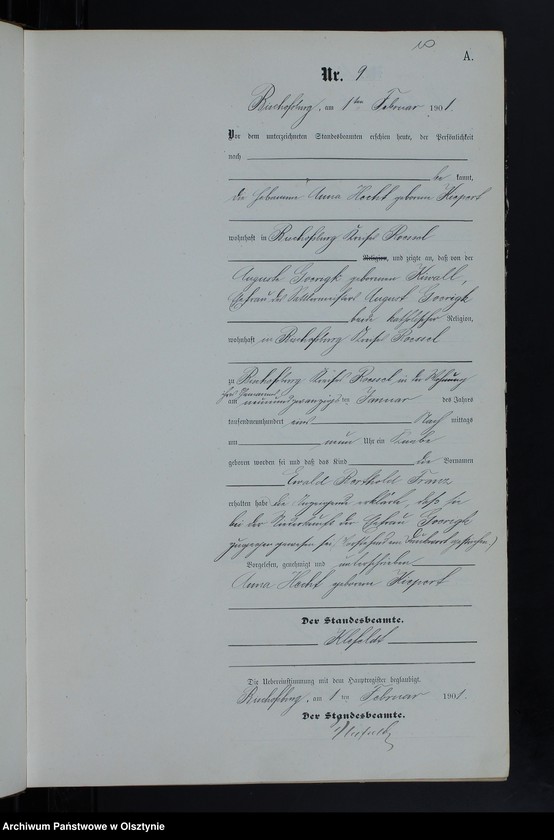 A.
Nr. 9
Bischofsburg, am 1ten Februar 1901
Vor dem unterzeichneten Standesbeamten erschien heute, der Persönlichkeit
nach
be kannt,
die Hebamme Anna Hecht geborene
wohnhaft in Bischofsburg Kreises Roessel
Religion, und zeigte an, daß von der
Auguste Goerigk geborenen Kuwall,
Ehefrau des Sattlermeisters August Goerigk
beide katholischer Religion,
wohnhaft in Bischofsburg Kreises Roessel
zu Bischofsburg Kreises Roessel in der Wohnung
ihres Ehemannes
am neunundzwanzigsten Januar des Jahres
tausendneunhundert eins Nach mittags
um neun Uhr ein Knabe
geboren worden sei und daß das Kind die Vornamen
Ewald Berthold Franz
erhalten habe die Anzeigende erklärte, daß sie
bei der Niederkunft der Ehefrau Goerigk
zugegen gewesen sei. Druckwort gestrichen.)
Vorgelesen, genehmigt und unterschrieben
Anna Hecht geborene
Der Standesbeamte.
Klefeldt
Die Uebereinstimmung mit dem Hauptregister beglaubigt.
Bischofsburg, am 1 ten Februar 1901.
Der Standesbeamte.
Archiwum Państwowe w Olsztynie